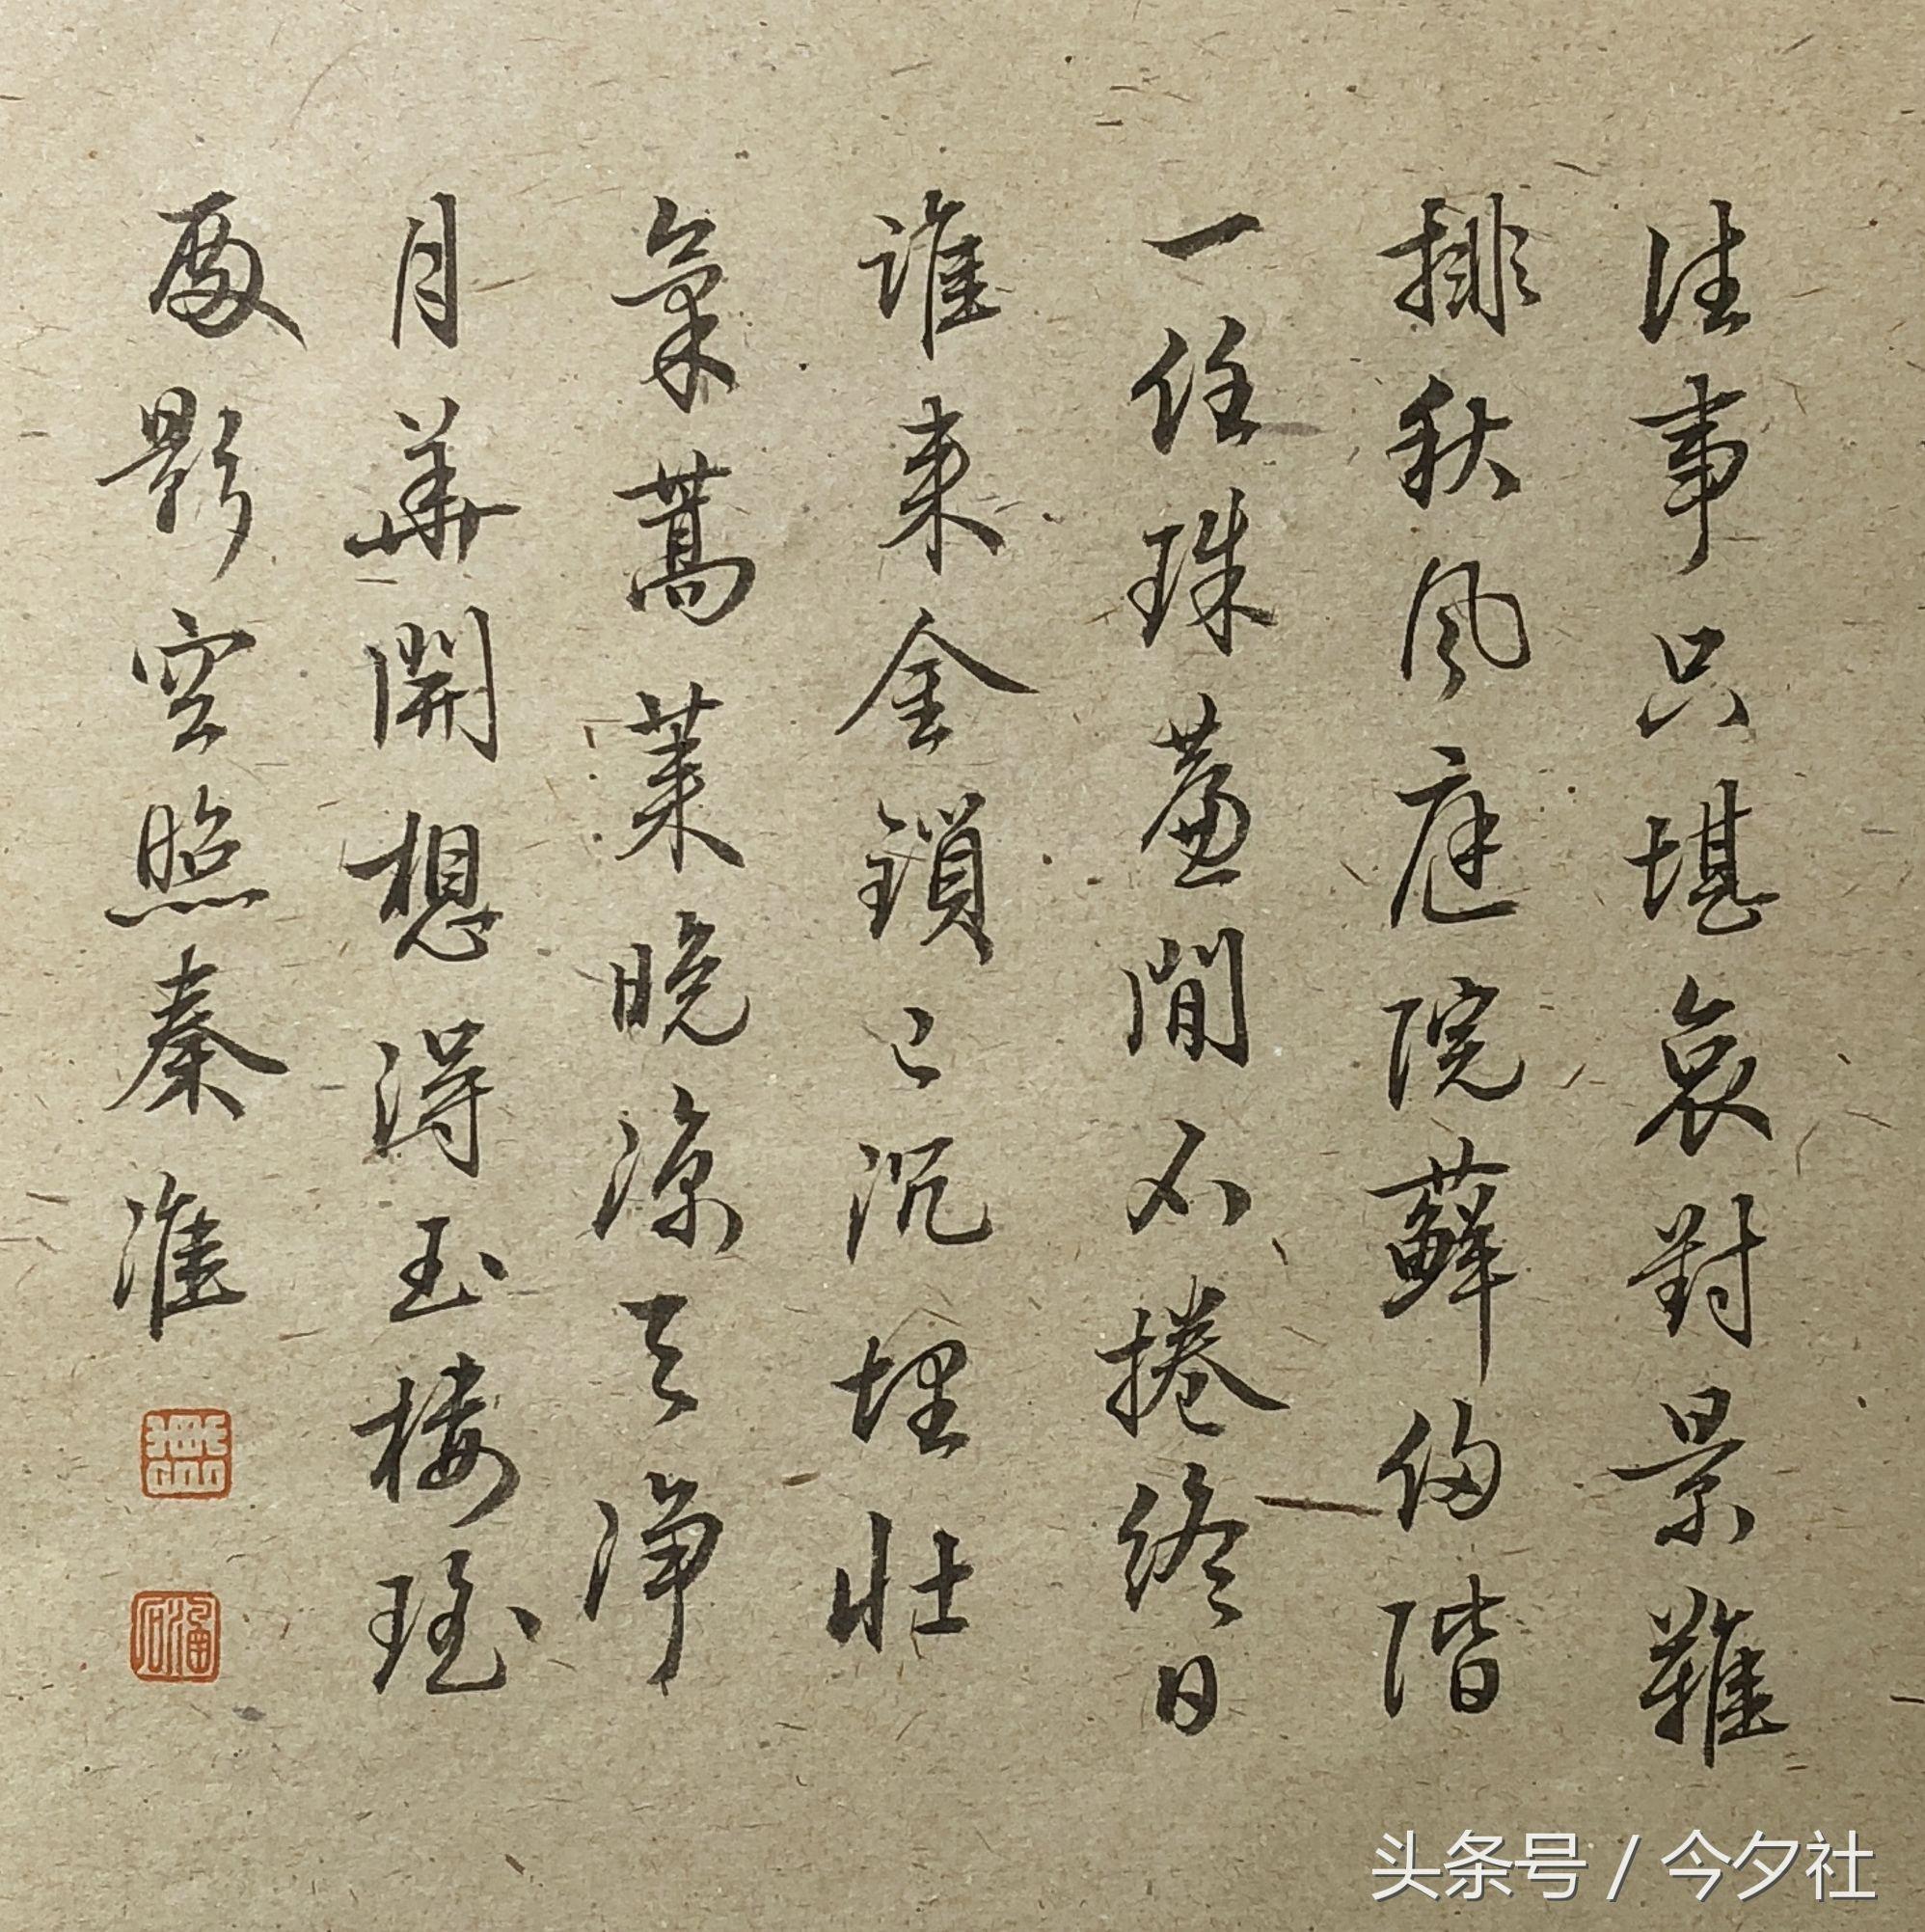 往事只堪哀對景難
排秋風庭院蘚侵階
一任珠簾閒不捲終日
誰來金鎖已沉埋壯
氣蒿萊晚涼天淨
月華開想得玉樓瑤
殿影空照秦淮
头条号 / 今夕社